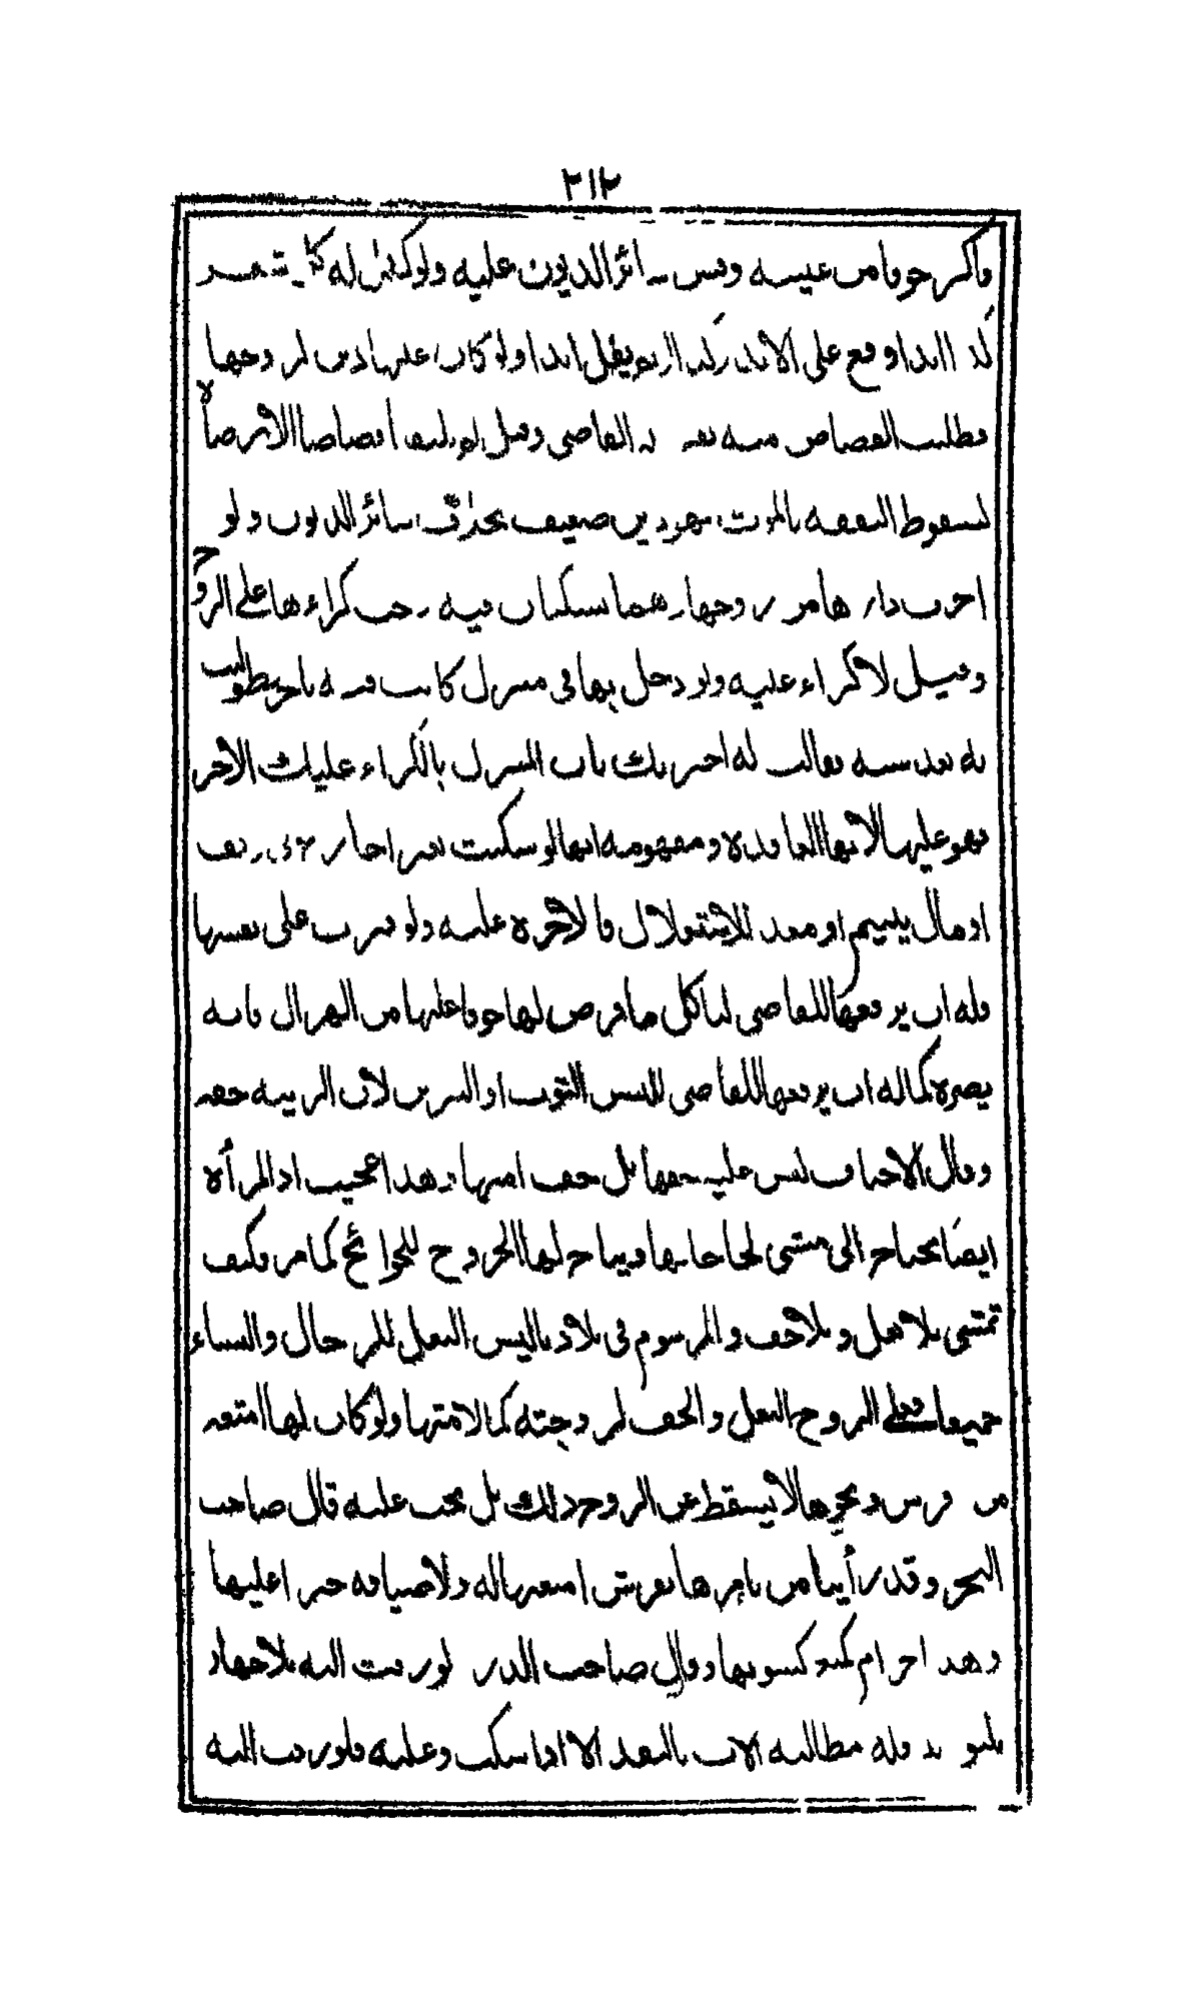 ٢١٢
فأكثر خوفا من غيبته وقس سائر الديون عليه ولو كفل له كل شهر
كذا أبدا وقع على الأبد وكذا لو لم يقل أبدا ولو كان عليها دين لزوجها
فطلب القصاص مع نفقته القاضي وقيل لم يلتقيا قصاصا إلا برضاه
لسقوط النفقة بالموت فهو دين ضعيف بخلاف سائر الديون ولو
آجرت دارها من زوجها وهما يسكنان فيه وجب كراءها على الزوج
وقيل لا كراء عليه ولو دخل بها في منزل كانت فيه بأجر فطولبت
به بعد سنة فقالت له أخبرتك بأن المنزل بالكراء عليك الأجر
فهو عليها لأنها العاقدة ومفهومه أنها لو سكنت بغير إجارة في وقف
أو مال يتيم أو معد للاستغلال فالأجرة عليه ولو قترت على نفسها
فله أن يرفعها للقاضي لتأكل مما فرض لها خوفا عليها من الهزال فإنه
يضره كما له أن يرفعها للقاضي للبس الثوب أو السرير لأن الزينة حقه
وقال الأحناف ليس عليه خفها بل خف أمتها وهذا عجيب إذ المرأة
أيضا تحتاج إلى مشي لحاجاتها ويباح لها الخروج للحوائج كما مر وكيف
تمشي بلا نعل وبلا خف والمرسوم في بلادنا لبس النعل للرجال والنساء
جميعا فعلى الزوج النعل والخف لزوجته كما لأمتها ولو كان لها أمتعة
من فرس ونحوها لا يسقط عن الزوج ذلك بل يجب عليه قال صاحب
البحر وقد رأينا من يأمرها بفرش أمتعتها له ولأضيافه جبرا عليها
وهذا حرام كمنع كسوتها وقال صاحب الدر لو زفت إليه بلا جهاز
يليق به فله مطالبة الأب بالنقد إلا إذا سكت وعليه فلو زفت إليه